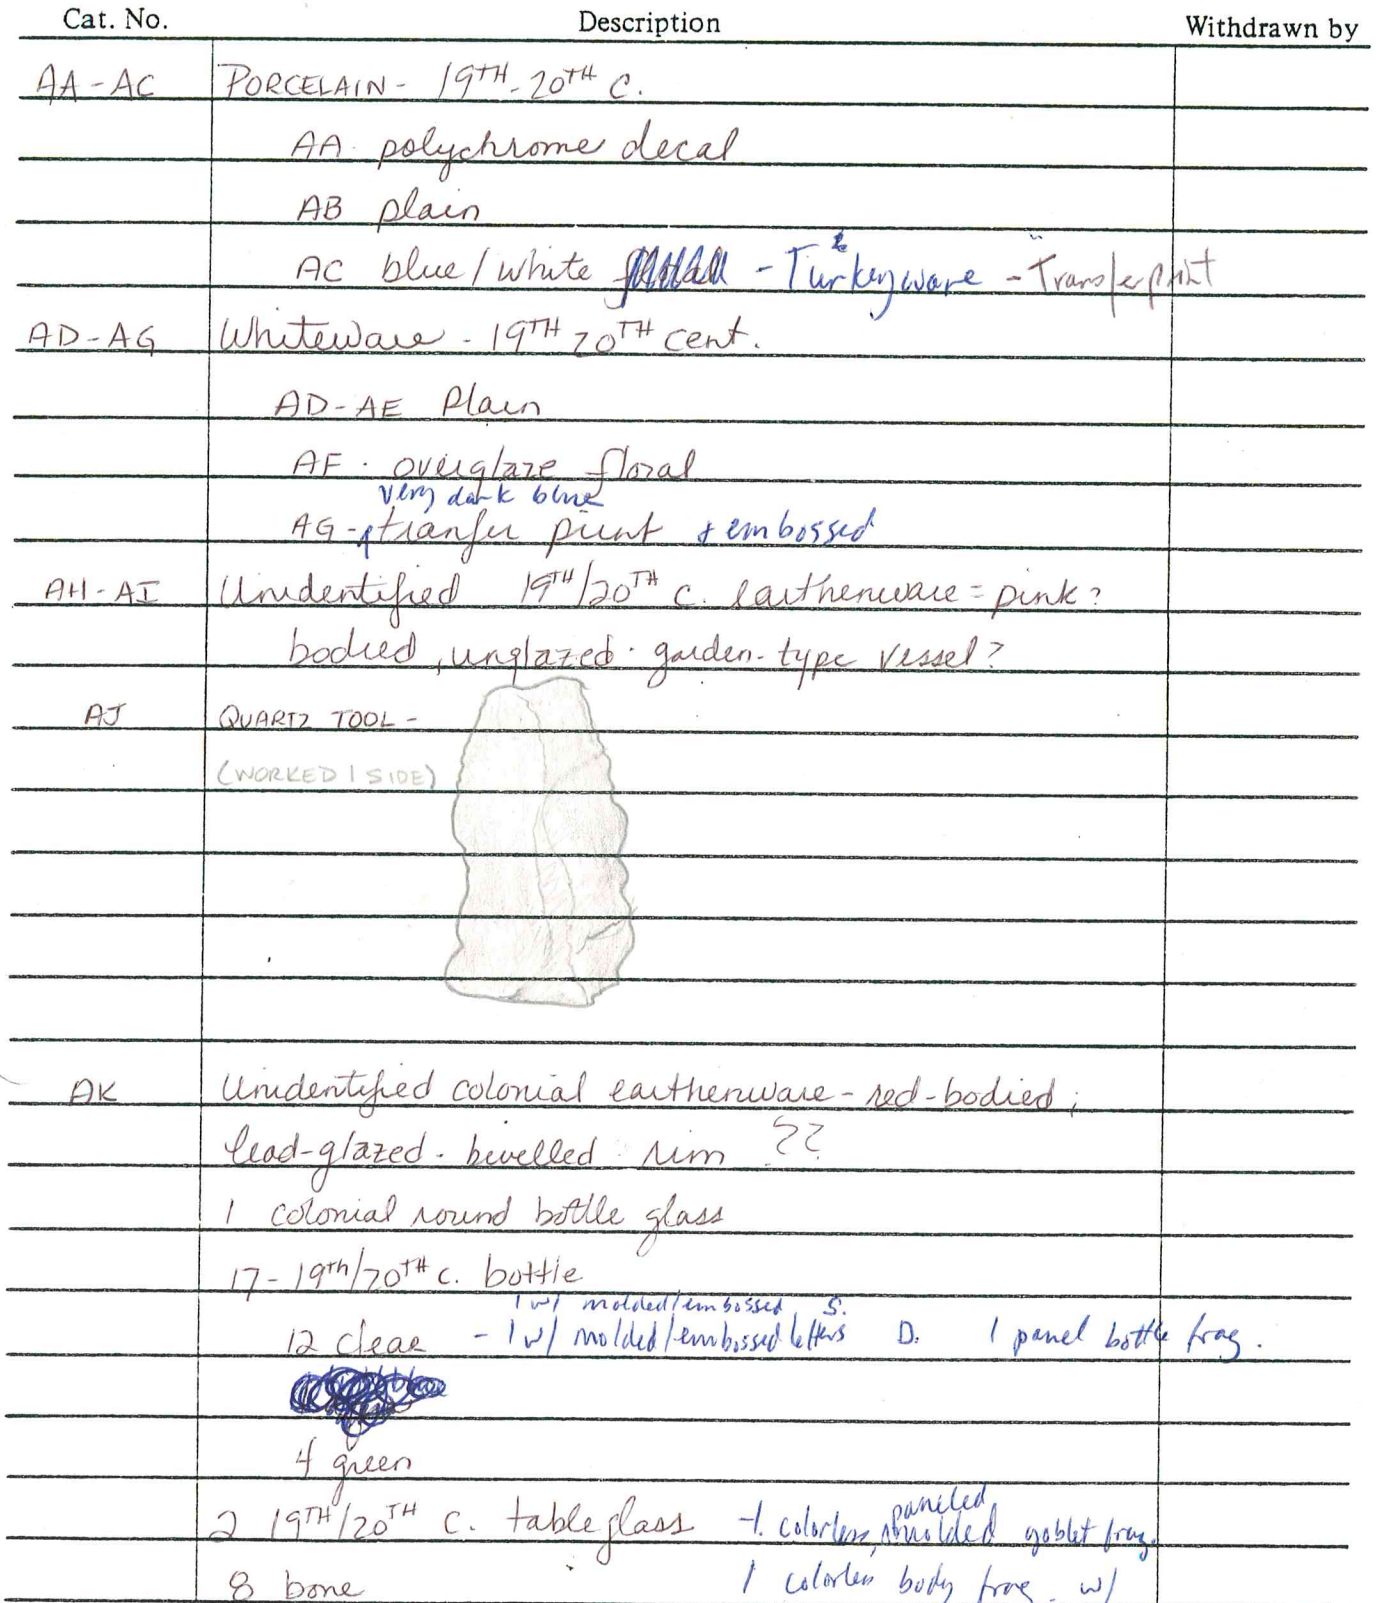 Cat. No. Description Withdrawn by
AA-AC PORCELAIN- 19TH-20TH C.
AA. polychrome decal
AB plain
AC blue/white - Turkeyware - Transferprint
AD-AG Whiteware - 19TH 20TH cent.
AD-AE Plain
AF. overglaze floral
very dark blue
AG- tranfer print + embossed
AH-AI Unidentified 19TH/20TH c. earthenware = pink?
bodied, unglazed. garden-type vessel?
AJ QUARTZ TOOL-
(WORKED 1 SIDE)
AK Unidentified colonial earthenware - red-bodied,
lead-glazed. bevelled rim ??
1 colonial round bottle glass
17- 19th/20TH c. bottle
1 w/ molded/embossed S.
12 clear - 1 w/ molded/embossed letters D. 1 panel bottle frag.
4 green
paneled
2 19TH/20TH c. table glass -1. colorless, molded goblet frag.
8 bone 1 colorless body frag. w/